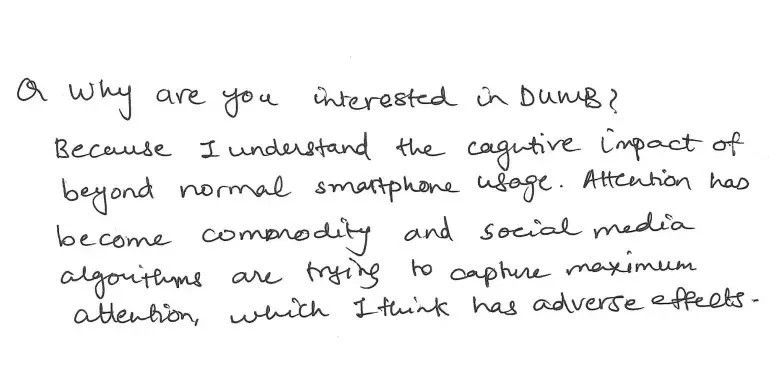 Q Why are you interested in DUMB?
Because I understand the cagutive impact of
beyond normal smartphone usage. Attention has
become commodity and social media
algorithms are trying to capture maximum
attention, which I think has adverse effects.